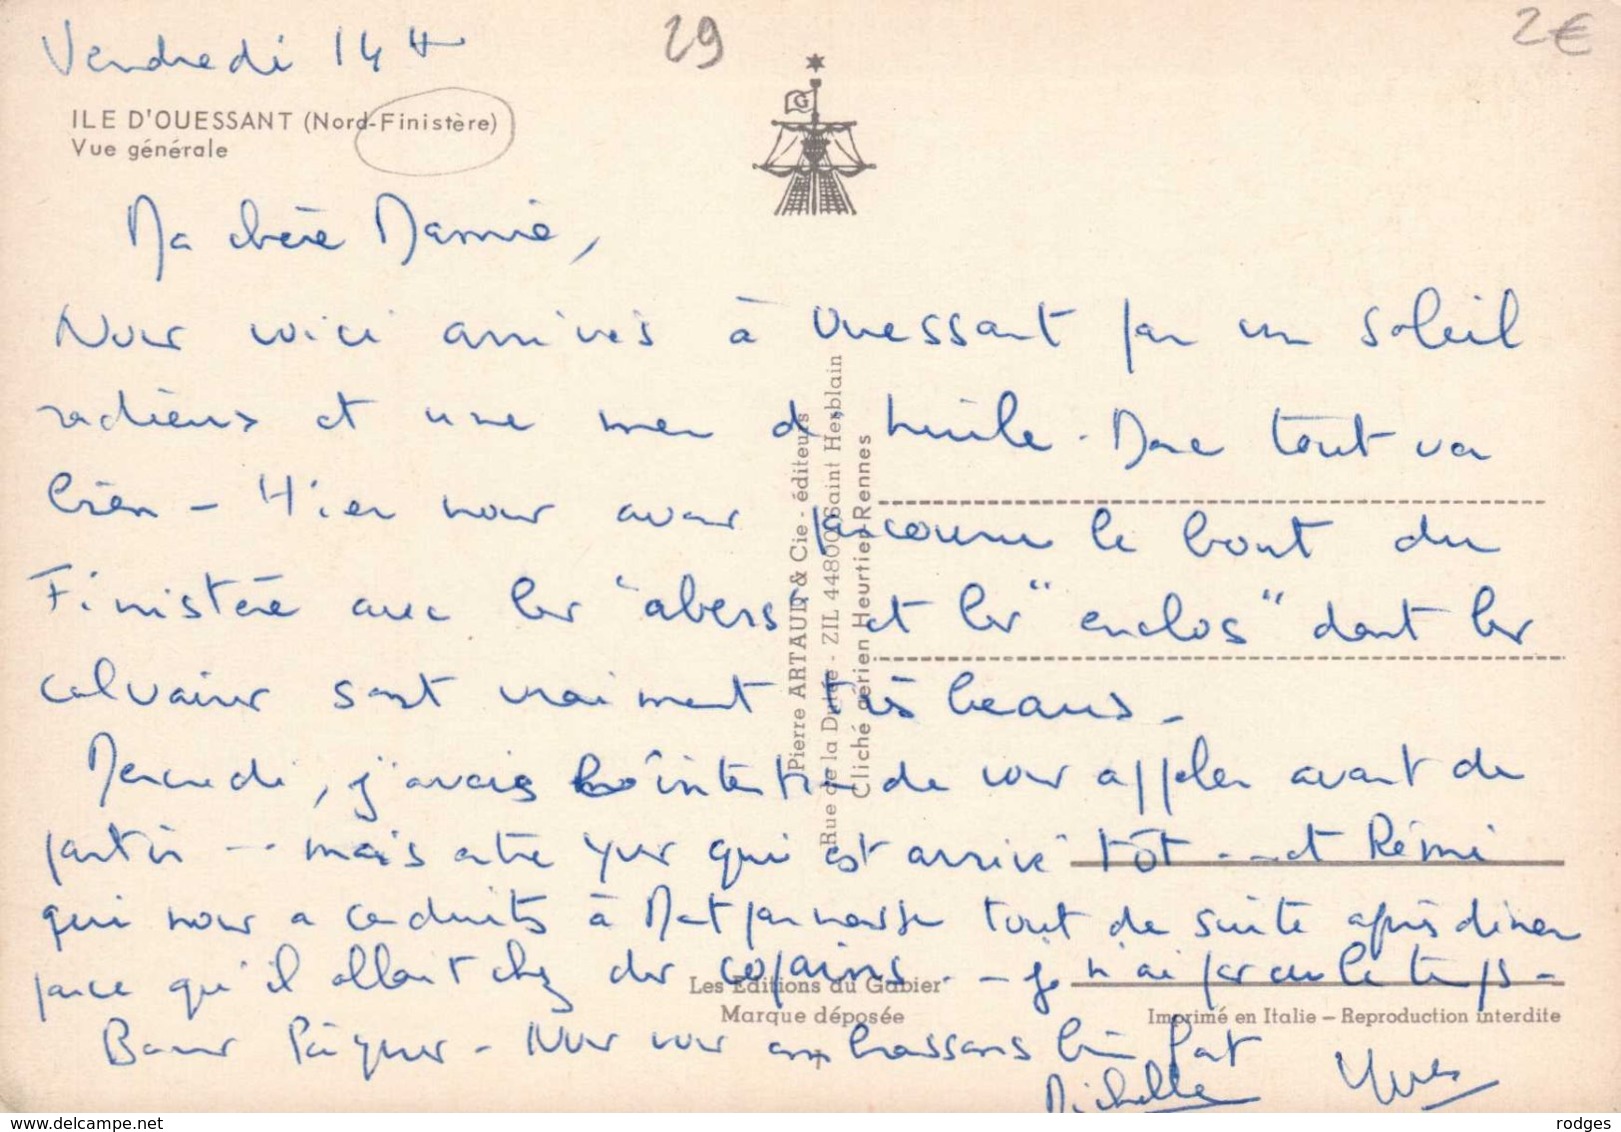 Vendredi 14 H
29
2€
ILE D'OUESSANT (Nord-Finistère)
Vue générale
G
Ma chère Mamie,
Nous voici arrivés à Ouessant par un soleil
radieux et une mer d'huile. Donc tout va
bien - Hier nous avons parcouru le bout du
Finistère avec les "abers" et les "enclos" dont les
calvaires sont vraiment très beaux -
Mercredi, j'avais l'intention de vous appeler avant de
partir -- mais entre Yves qui est arrivé tôt -- et Rémi
qui nous a conduits à Montparnasse tout de suite après diner
parce qu'il allait chez des copains -- je n'ai pas eu le temps -
Bonnes Pâques - Nous vous embrassons bien fort
Michelle Yves
Pierre ARTAUD & Cie - éditeurs
Rue de la Dutée - ZIL 44800 Saint Herblain
Cliché aérien Heurtier Rennes
Les Editions du Gabier
Marque déposée
Imprimé en Italie - Reproduction interdite
www.delcampe.net
rodges